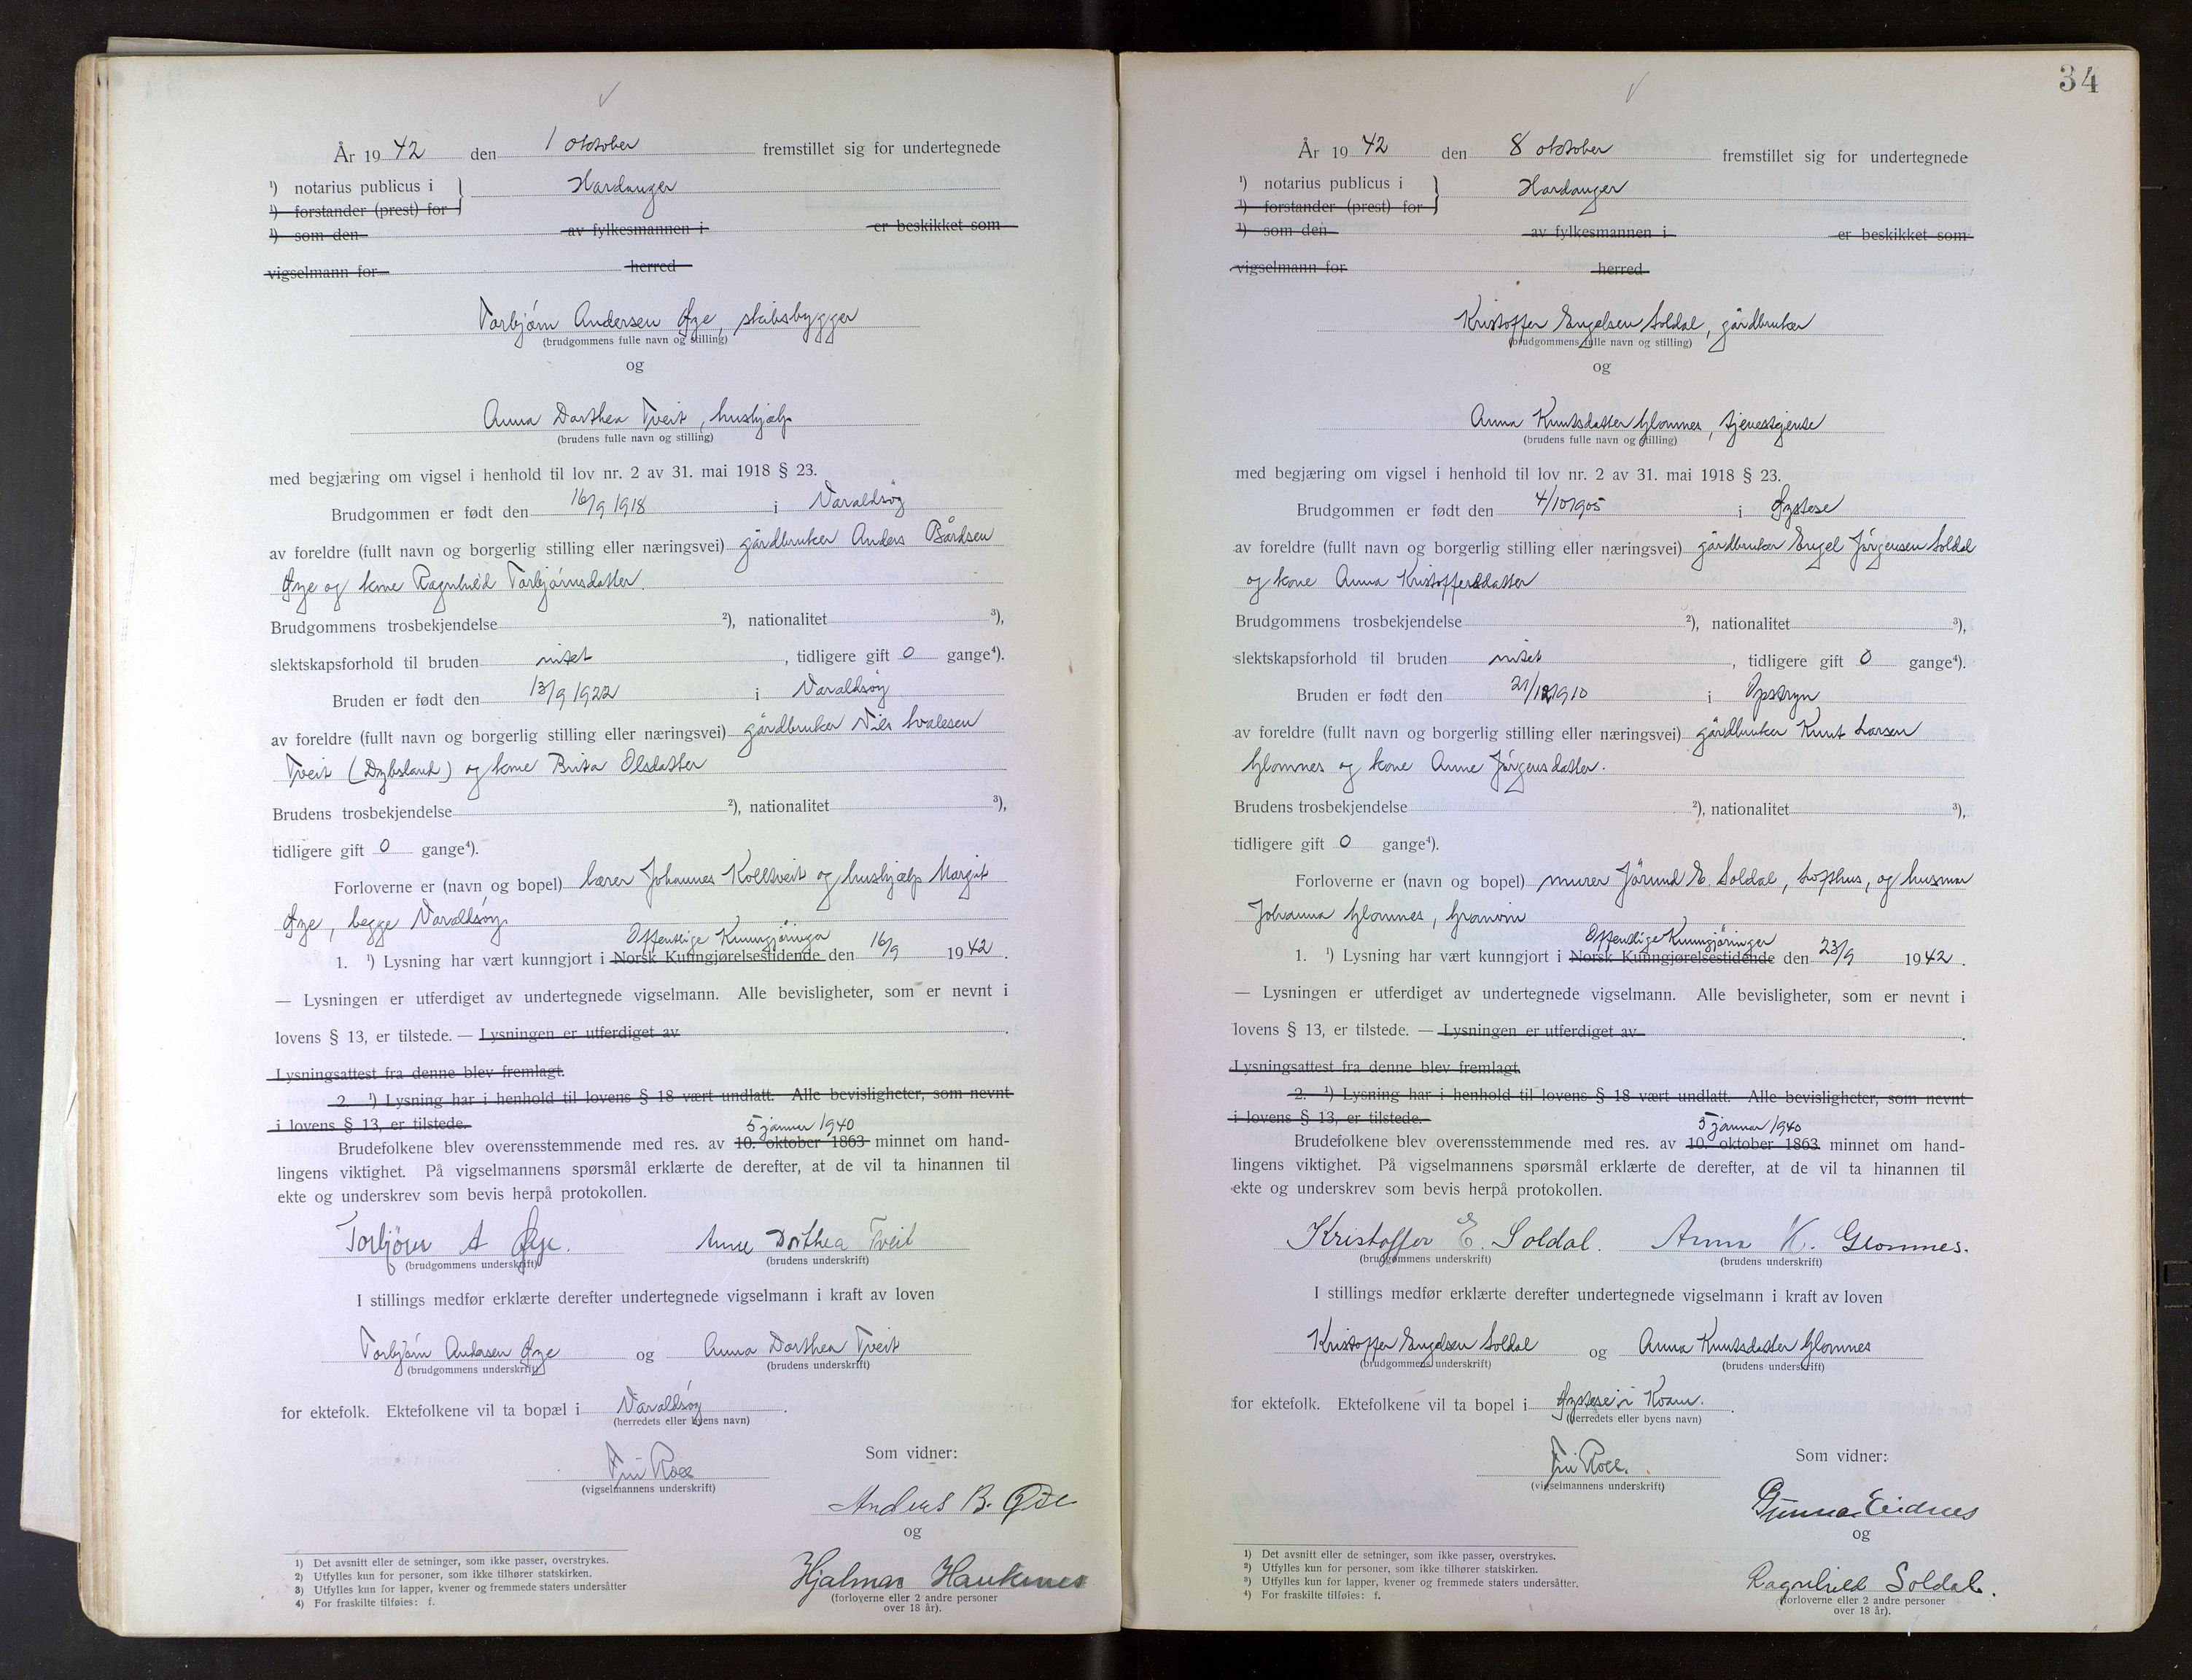 År 1942 den 1 oktober fremstillet sig for undertegnede
¹) notarius publicus i } Hardanger
¹) forstander (prest) for
¹) som den av fylkesmannen i er beskikket som
vigselmann for herred
Torbjörn Andersen Øye, skibsbygger
(brudgommens fulle navn og stilling)
og
Anna Dorthea Tveit, hushjælp
(brudens fulle navn og stilling)
med begjæring om vigsel i henhold til lov nr. 2 av 31. mai 1918 § 23.
Brudgommen er født den 16/9 1918 i Varaldsøy
av foreldre (fullt navn og borgerlig stilling eller næringsvei) gårdbruker Anders Bårdsen
Øye og kone Ragnhild Torbjörnsdatter.
Brudgommens trosbekjendelse ²), nationalitet ³),
slektskapsforhold til bruden intet , tidligere gift 0 gange⁴).
Bruden er født den 13/9 1922 i Varaldsøy
av foreldre (fullt navn og borgerlig stilling eller næringsvei) gårdbruker Nils
Tveit (Dybsland) og kone Brita Olsdatter
Brudens trosbekjendelse ²), nationalitet ³),
tidligere gift 0 gange⁴).
Forloverne er (navn og bopel) lærer Johannes Kolltveit og hushjælp Margit
Øye, begge Varaldsøy.
Offentlige Kunngjöringer
1. ¹) Lysning har vært kunngjort i Norsk Kunngjørelsestidende den 16/9 1942 .
— Lysningen er utferdiget av undertegnede vigselmann. Alle bevisligheter, som er nevnt i
lovens § 13, er tilstede. — Lysningen er utferdiget av .
Lysningsattest fra denne blev fremlagt.
2. ¹) Lysning har i henhold til lovens § 18 vært undlatt. Alle bevisligheter, som nevnt
i lovens § 13, er tilstede.
5 januar 1940
Brudefolkene blev overensstemmende med res. av 10. oktober 1863 minnet om hand-
lingens viktighet. På vigselmannens spørsmål erklærte de derefter, at de vil ta hinannen til
ekte og underskrev som bevis herpå protokollen.
Torbjörn A Øye. Anna Dorthea Tveit
(brudgommens underskrift) (brudens underskrift)
I stillings medfør erklærte derefter undertegnede vigselmann i kraft av loven
Torbjörn Andersen Øye og Anna Dorthea Tveit
(brudgommens underskrift) (brudens underskrift)
for ektefolk. Ektefolkene vil ta bopæl i Varaldsøy .
(herredets eller byens navn)
Roll
(vigselmannens underskrift)
Som vidner:
Anders B. Øie
og
Hjalmar Haukenes
(forloverne eller 2 andre personer
over 18 år).
1) Det avsnitt eller de setninger, som ikke passer, overstrykes.
2) Utfylles kun for personer, som ikke tilhører statskirken.
3) Utfylles kun for lapper, kvener og fremmede staters undersåtter
4) For fraskilte tilføies: f.
34
År 1942 den 8 oktober fremstillet sig for undertegnede
¹) notarius publicus i } Hardanger
¹) forstander (prest) for
¹) som den av fylkesmannen i er beskikket som
vigselmann for herred
Kristoffer Engelsen Soldal, gårdbruker
(brudgommens fulle navn og stilling)
og
Anna Knutsdatter Glomnes, tjenestjente
(brudens fulle navn og stilling)
med begjæring om vigsel i henhold til lov nr. 2 av 31. mai 1918 § 23.
Brudgommen er født den 4/10 1905 i Øystese
av foreldre (fullt navn og borgerlig stilling eller næringsvei) gårdbruker Engel Jörgensen Soldal
og kone Anna Kristoffersdatter
Brudgommens trosbekjendelse ²), nationalitet ³),
slektskapsforhold til bruden intet , tidligere gift 0 gange⁴).
Bruden er født den 21/12 1910 i Opstryn
av foreldre (fullt navn og borgerlig stilling eller næringsvei) gårdbruker Knut Larsen
Glomnes og kone Anne Jörgensdatter.
Brudens trosbekjendelse ²), nationalitet ³),
tidligere gift 0 gange⁴).
Forloverne er (navn og bopel) murer Jörund E. Soldal, Lofthus, og husmor
Johanna Glomnes, Granvin
Offentlige Kunngjöringer
1. ¹) Lysning har vært kunngjort i Norsk Kunngjørelsestidende den 23/9 1942 .
— Lysningen er utferdiget av undertegnede vigselmann. Alle bevisligheter, som er nevnt i
lovens § 13, er tilstede. — Lysningen er utferdiget av .
Lysningsattest fra denne blev fremlagt.
2. ¹) Lysning har i henhold til lovens § 18 vært undlatt. Alle bevisligheter, som nevnt
i lovens § 13, er tilstede.
5 januar 1940
Brudefolkene blev overensstemmende med res. av 10. oktober 1863 minnet om hand-
lingens viktighet. På vigselmannens spørsmål erklærte de derefter, at de vil ta hinannen til
ekte og underskrev som bevis herpå protokollen.
Kristoffer E. Soldal. Anna K. Glomnes.
(brudgommens underskrift) (brudens underskrift)
I stillings medfør erklærte derefter undertegnede vigselmann i kraft av loven
Kristoffer Engelsen Soldal og Anna Knutsdatter Glomnes
(brudgommens underskrift) (brudens underskrift)
for ektefolk. Ektefolkene vil ta bopel i Øystese i Kvam.
(herredets eller byens navn)
Roll.
(vigselmannens underskrift)
Som vidner:
Gunnar Eidnes
og
Ragnhild Soldal.
(forloverne eller 2 andre personer
over 18 år).
1) Det avsnitt eller de setninger, som ikke passer, overstrykes.
2) Utfylles kun for personer, som ikke tilhører statskirken.
3) Utfylles kun for lapper, kvener og fremmede staters undersåtter.
4) For fraskilte tilføies: f.